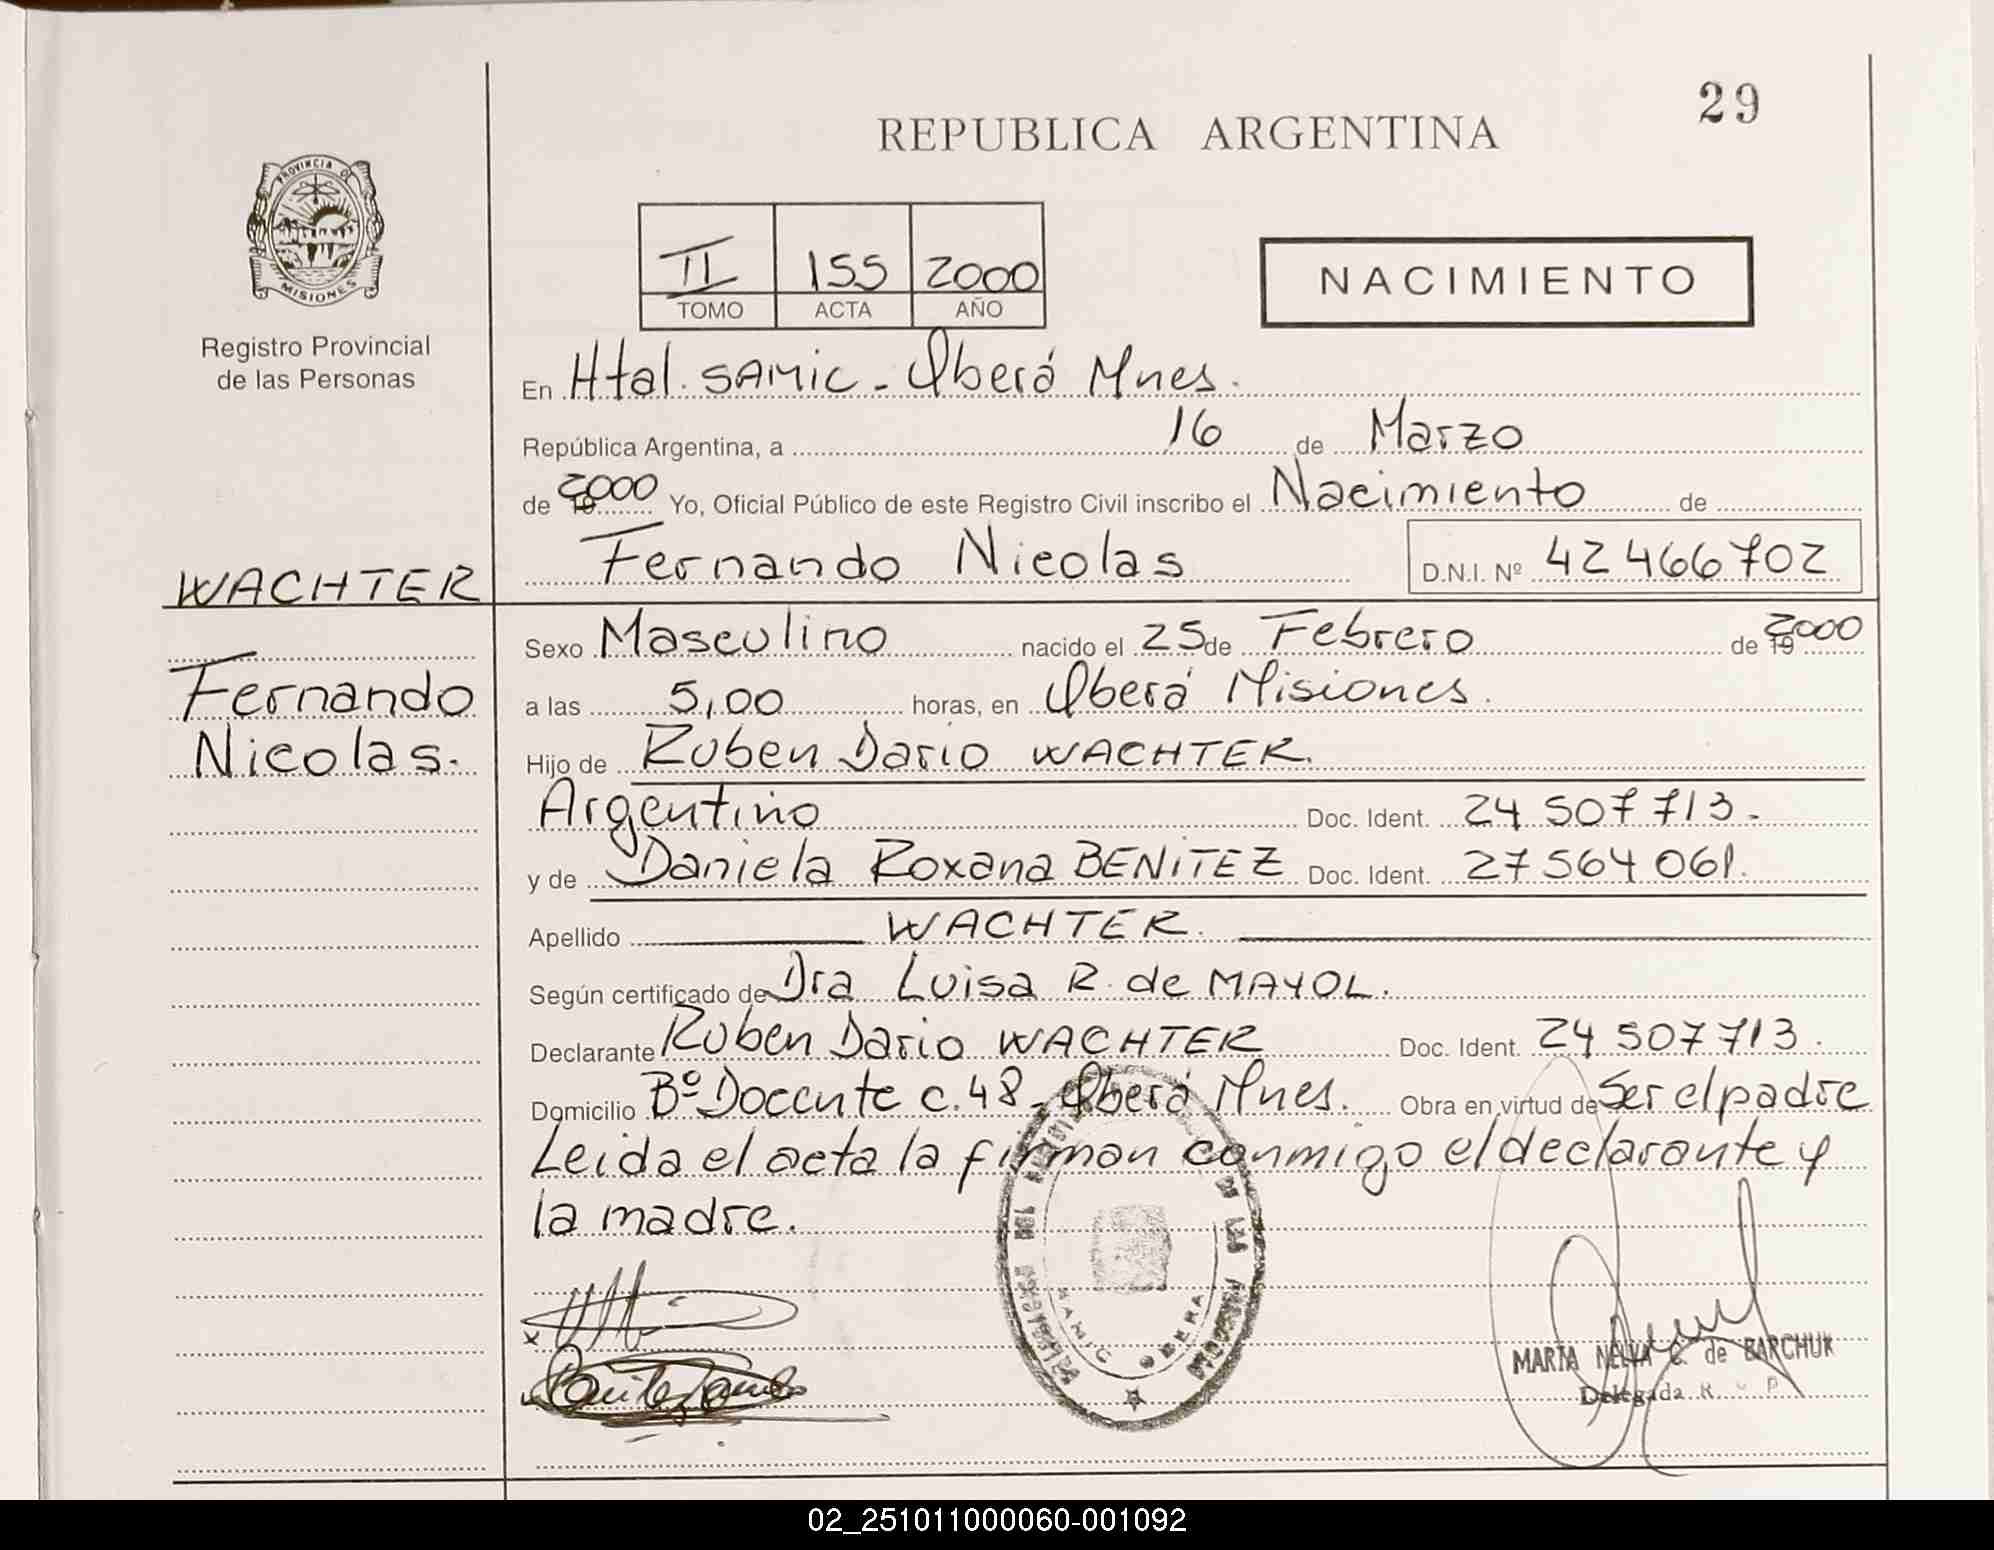 29
REPUBLICA ARGENTINA
PROVINCIA DE
MISIONES
Registro Provincial
de las Personas
II 155 2000
TOMO ACTA AÑO
NACIMIENTO
En Htal. SAMIC - Oberá Mnes.
República Argentina, a 16 de Marzo
de 2000 Yo, Oficial Público de este Registro Civil inscribo el Nacimiento de
Fernando Nicolas D.N.I. Nº 42 466 702
WACHTER
Fernando
Nicolas.
Sexo Masculino nacido el 25 de Febrero de 2000
a las 5,00 horas, en Oberá Misiones.
Hijo de Ruben Dario WACHTER.
Argentino Doc. Ident. 24 507 713.
y de Daniela Roxana BENITEZ Doc. Ident. 27 564 061.
Apellido WACHTER.
Según certificado de Dra Luisa R. de MAYOL.
Declarante Ruben Dario WACHTER Doc. Ident. 24 507 713.
Domicilio Bº Docente c. 48 - Oberá Mnes. Obra en virtud de Ser el padre
Leida el acta la firman conmigo el declarante y
la madre.
SAMIC OBERA
MARIA NELVA C. de BARCHUK
Delegada R. P
02_251011000060-001092